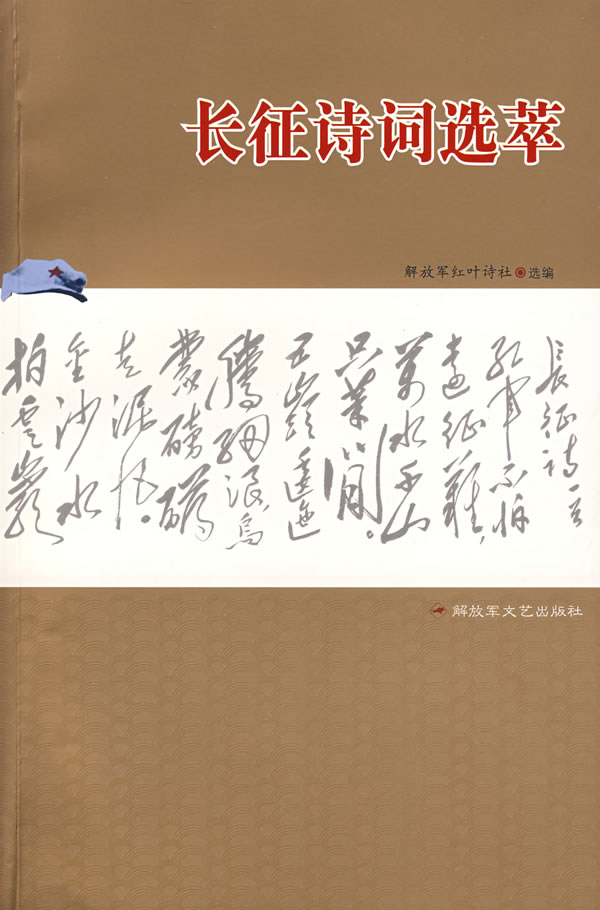 长征诗词选萃
解放军红叶诗社 选编
長征詩一首
紅軍不怕
遠征難,
萬水千山
只等閒。
五嶺逶迤
騰細浪,烏
蒙磅礴
走泥丸。
金沙水
拍雲崖
解放军文艺出版社